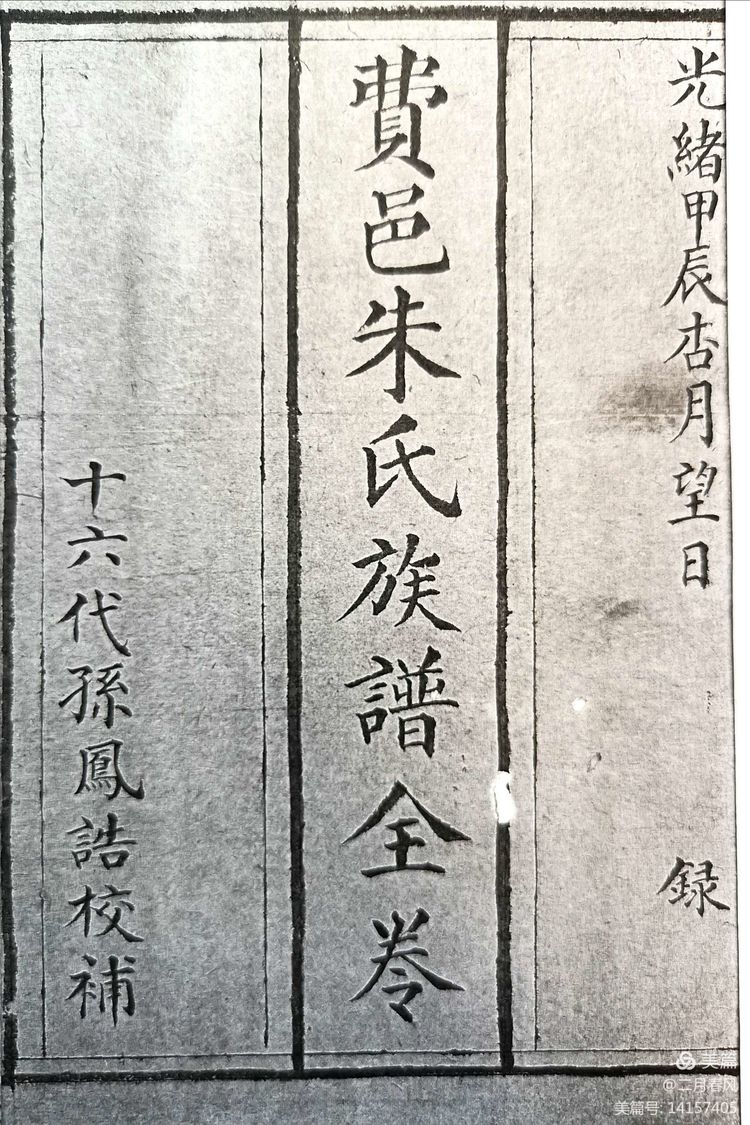 光緒甲辰杏月望日 録
費邑朱氏族譜全卷
十六代孫鳳誥校補
美篇
@二月春风
美篇号: 14157405